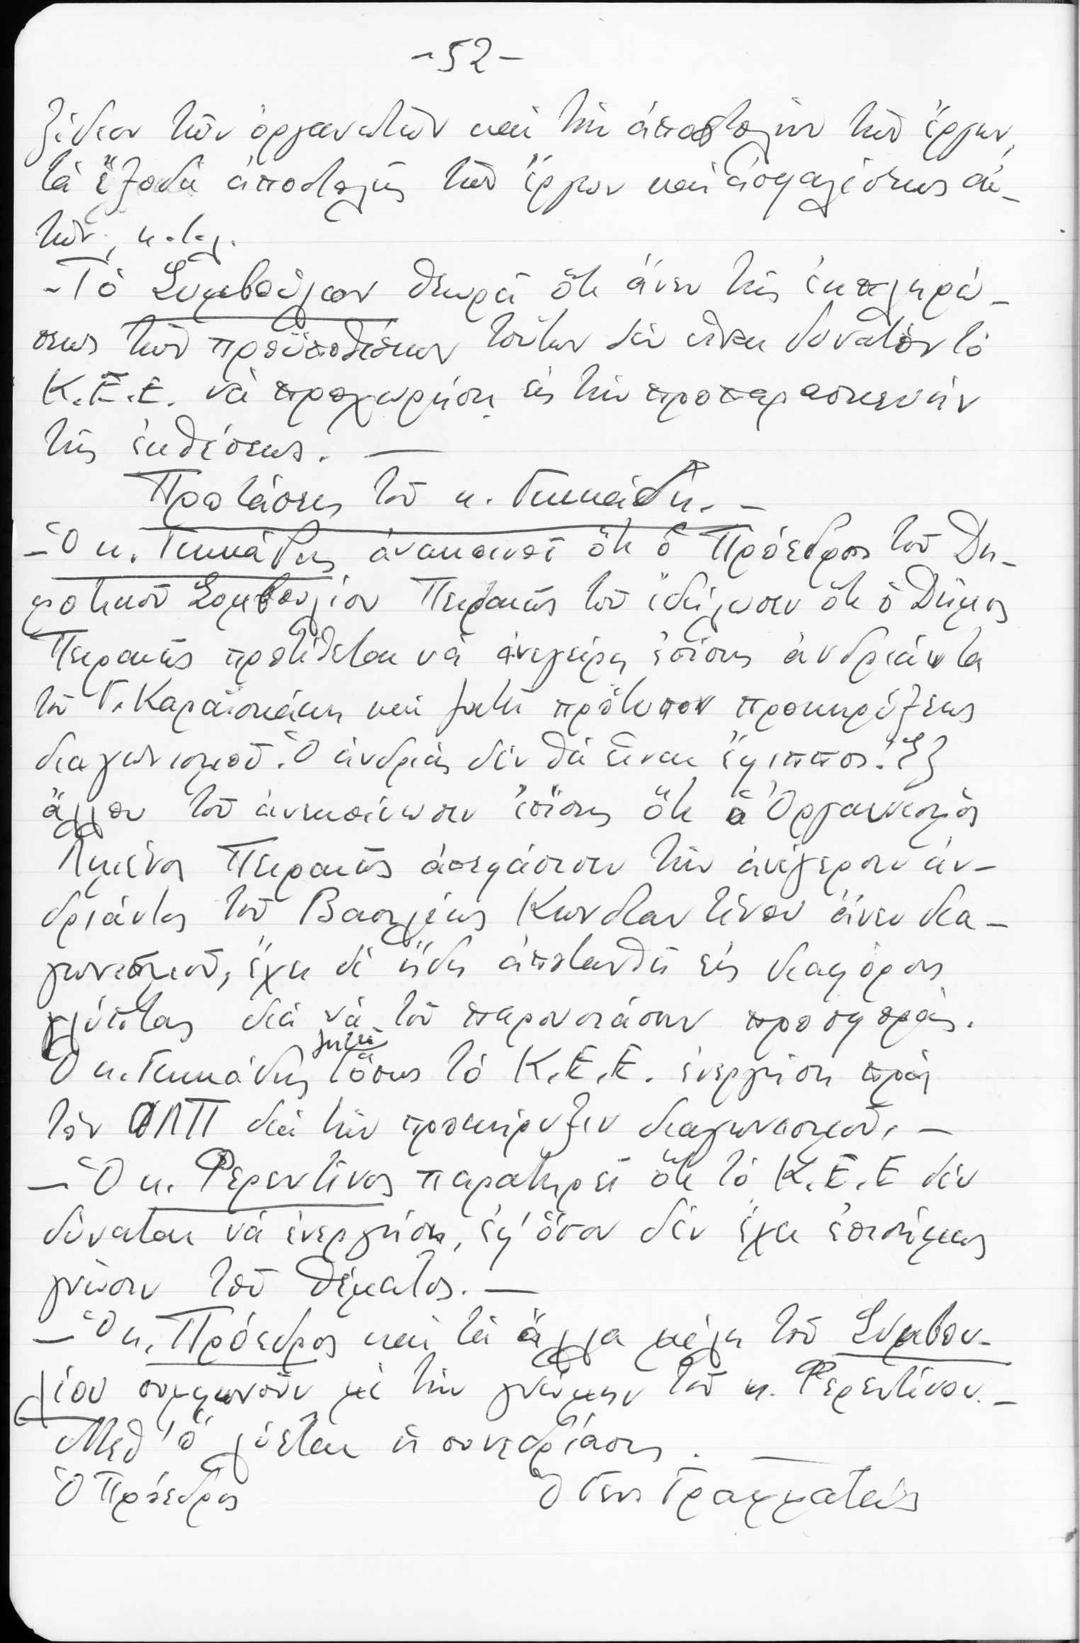 -52-
ξίδιον τῶν ὀργανωτῶν καὶ τὴν ἀποστολὴν τῶν ἔργων,
τὰ ἔξοδα ἀποστολῆς τῶν ἔργων καὶ ἀσφαλίσεως αὐ-
τῶν, κ.τ.λ.
-Τὸ Συμβούλιον θεωρεῖ ὅτι ἄνευ τῆς ἐκπληρώ-
σεως τῶν προϋποθέσεων τούτων δὲν εἶναι δυνατὸν τὸ
Κ.Ε.Ε. νὰ προχωρήσῃ εἰς τὴν προπαρασκευὴν
τῆς ἐκθέσεως. —
Προτάσεις τοῦ κ. Γικκάδη. -
-Ὁ κ. Γικκάδης ἀνακοινοῖ ὅτι ὁ Πρόεδρος τοῦ Δη-
μοτικοῦ Συμβουλίου Πειραιῶς τοῦ ἐδήλωσεν ὅτι ὁ Δῆμος
Πειραιῶς προτίθεται νὰ ἀνεγείρῃ ἐπίσης ἀνδριάντα
τοῦ Γ. Καραϊσκάκη καὶ ζητεῖ πρότυπον προκηρύξεως
διαγωνισμοῦ. Ὁ ἀνδριὰς δὲν θὰ εἶναι ἔφιππος. Ἐξ
ἄλλου τοῦ ἀνεκοίνωσεν ἐπίσης ὅτι ὁ Ὀργανισμὸς
Λιμένος Πειραιῶς ἀπεφάσισεν τὴν ἀνέγερσιν ἀν-
δριάντος τοῦ Βασιλέως Κωνσταντίνου ἄνευ δια-
γωνισμοῦ, ἔχει δὲ ἤδη ἀποτανθῆ εἰς διαφόρους
γλύπτας διὰ νὰ τοῦ παρουσιάσουν προσφοράς.
ζητεῖ
Ὁ κ. Γικκάδης ὅπως τὸ Κ.Ε.Ε. ἐνεργήσῃ πρὸς
τὸν ΟΛΠ διὰ τὴν προκήρυξιν διαγωνισμοῦ. —
— Ὁ κ. Φερεντῖνος παρατηρεῖ ὅτι τὸ Κ.Ε.Ε δὲν
δύναται νὰ ἐνεργήσῃ, ἐφ' ὅσον δὲν ἔχει ἐπισήμως
γνῶσιν τοῦ θέματος. —
— Ὁ κ. Πρόεδρος καὶ τὰ ἄλλα μέλη τοῦ Συμβου-
λίου συμφωνοῦν μὲ τὴν γνώμην τοῦ κ. Φερεντίνου. -
Μεθ' ὃ λύεται ἡ συνεδρίασις. —
Ὁ Πρόεδρος Ὁ Γεν. Γραμματεὺς